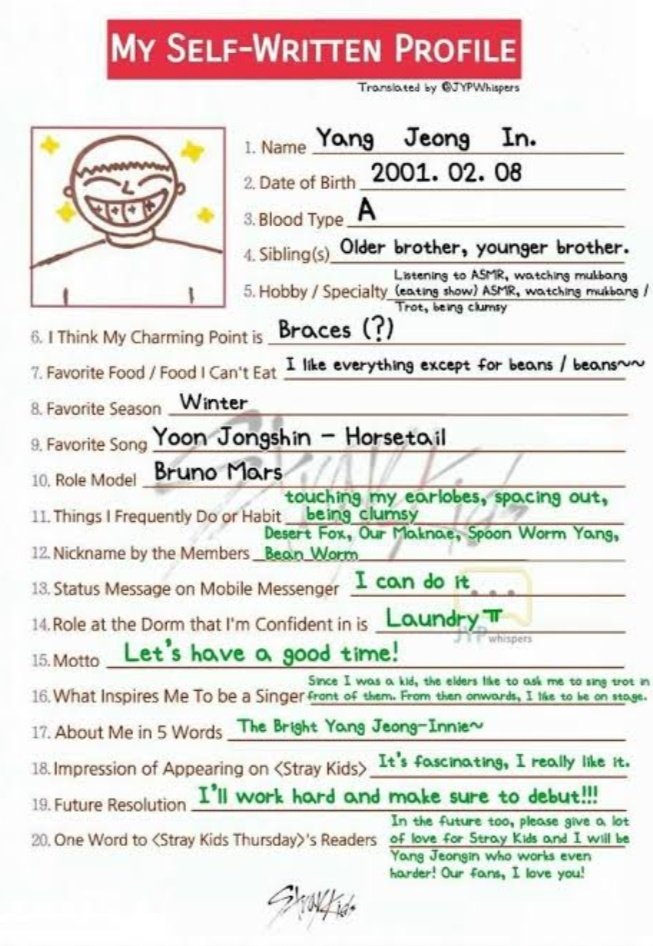 MY SELF-WRITTEN PROFILE
Translated by @JYPWhispers
1. Name Yang Jeong In.
2. Date of Birth 2001. 02. 08
3. Blood Type A
4. Sibling(s) Older brother, younger brother.
Listening to ASMR, watching mukbang
5. Hobby / Specialty (eating show) ASMR, watching mukbang /
Trot, being clumsy
6. I Think My Charming Point is Braces (?)
7. Favorite Food / Food I Can't Eat I like everything except for beans / beans~~
8. Favorite Season Winter
9. Favorite Song Yoon Jongshin - Horsetail
10. Role Model Bruno Mars
touching my earlobes, spacing out,
11. Things I Frequently Do or Habit being clumsy
Desert Fox, Our Maknae, Spoon Worm Yang,
12. Nickname by the Members Bean Worm
13. Status Message on Mobile Messenger I can do it
14. Role at the Dorm that I'm Confident in is Laundry ㅠ
JYP whispers
15. Motto Let's have a good time!
Since I was a kid, the elders like to ask me to sing trot in
16. What Inspires Me To be a Singer front of them. From then onwards, I like to be on stage.
17. About Me in 5 Words The Bright Yang Jeong-Innie~
18. Impression of Appearing on <Stray Kids> It's fascinating, I really like it.
19. Future Resolution I'll work hard and make sure to debut!!!
In the future too, please give a lot
20. One Word to <Stray Kids Thursday>'s Readers of love for Stray Kids and I will be
Yang Jeongin who works even
harder! Our fans, I love you!
Stray Kids